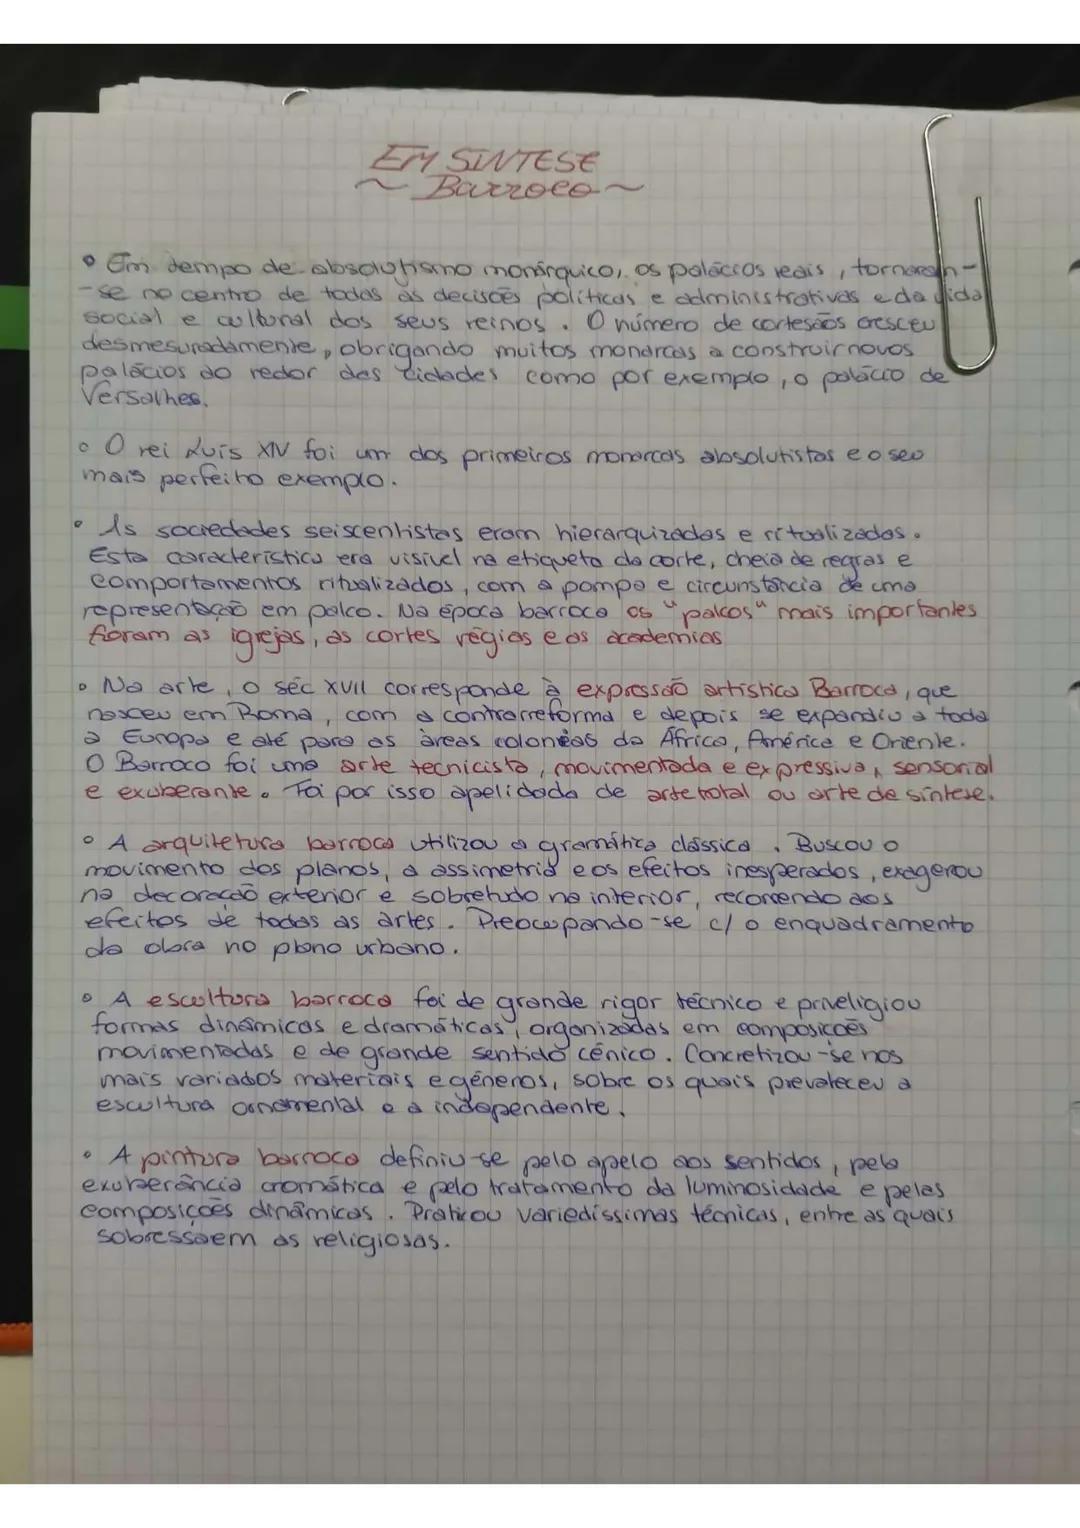 EM SINTESE
~ Barroco ~
• Em tempo de absolutismo monárquico, os palácios reais, tornaram-
-se no centro de todas as decisões políticas e administrativas e da vida
social e cultural dos seus reinos. O número de cortesãos cresceu
desmesuradamente, obrigando muitos monarcas a construir novos
palácios ao redor das cidades como por exemplo, o palácio de
Versalhes.
• O rei Luís XIV foi um dos primeiros monarcas absolutistas e o seu
mais perfeito exemplo.
• As sociedades seiscentistas eram hierarquizadas e ritualizadas.
Esta característica era visível na etiqueta da corte, cheia de regras e
comportamentos ritualizados, com a pompa e circunstância de uma
representação em palco. Na época barroca os "palcos" mais importantes
foram as igrejas, as cortes régias e as academias
• Na arte, o séc XVII corresponde à expressão artística Barroca, que
nasceu em Roma, com a contrarreforma e depois se expandiu a toda
a Europa e até para as áreas coloniais da África, América e Oriente.
O Barroco foi uma arte tecnicista, movimentada e expressiva, sensorial
e exuberante. Foi por isso apelidada de arte total ou arte de síntese.
• A arquitetura barroca utilizou a gramática clássica. Buscou o
movimento dos planos, a assimetria e os efeitos inesperados, exagerou
na decoração exterior e sobretudo no interior, recorrendo aos
efeitos de todas as artes. Preocupando-se c/ o enquadramento
da obra no plano urbano.
• A escultura barroca foi de grande rigor técnico e priveligiou
formas dinâmicas e dramáticas, organizadas em composições
movimentadas e de grande sentido cénico. Concretizou-se nos
mais variados materiais e géneros, sobre os quais prevaleceu a
escultura ornamental e a independente.
• A pintura barroca definiu-se pelo apelo aos sentidos, pela
exuberância cromática e pelo tratamento da luminosidade e pelas
composições dinâmicas. Praticou variedíssimas técnicas, entre as quais
sobressaem as religiosas.